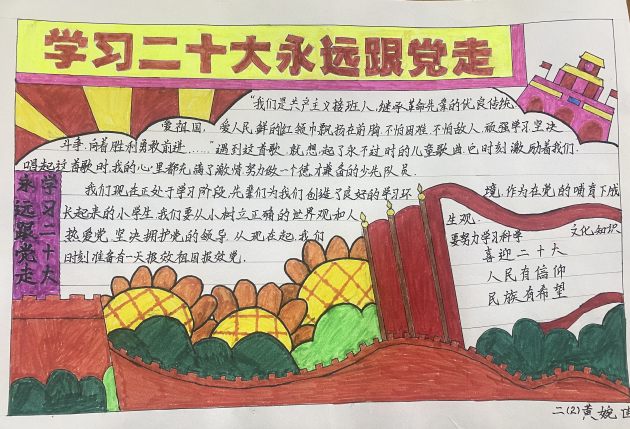 学习二十大永远跟党走
"我们是共产主义接班人,继承革命先辈的优良传统,
爱祖国,爱人民,鲜艳的红领巾飘扬在前胸,不怕困难,不怕敌人,顽强学习,坚决
斗争,向着胜利勇敢前进……"遇到这首歌,就想起了永不过时的儿童歌曲,它时刻激励着我们.
唱起这首歌时,我的心里都充满了激情努力做一个德才兼备的少先队员.
我们现在正处于学习阶段,先辈们为我们创造了良好的学习环境,作为在党的哺育下成
长起来的小学生,我们要从小树立正确的世界观和人生观.
热爱党,坚决拥护党的领导,从现在起,我们要努力学习科学文化知识
时刻准备有一天报效祖国报效党.
喜迎二十大
人民有信仰
民族有希望
学习二十大
永远跟党走
二(2)黄婉